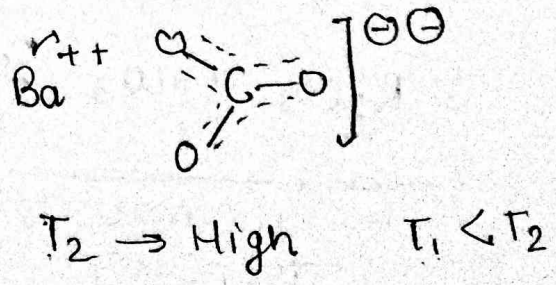 Ba++ O C O O ] ⊖ ⊖
T2 → High T1 < T2